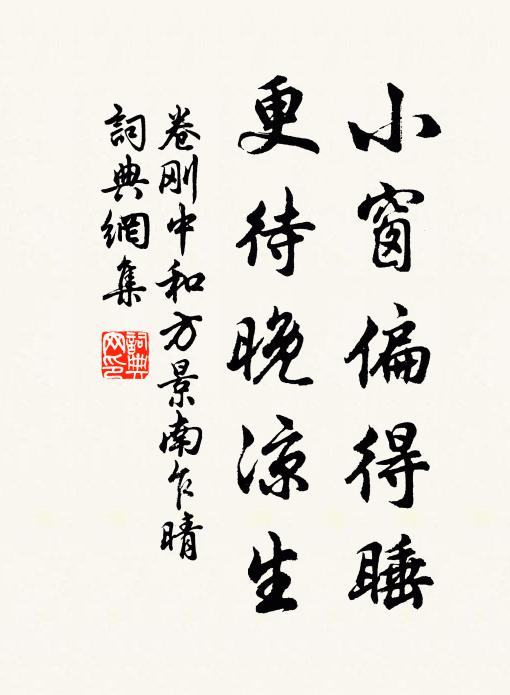 小窗偏得睡
更待晚凉生
卷刚中和方景南乍晴
詞典網集
詞典
网印